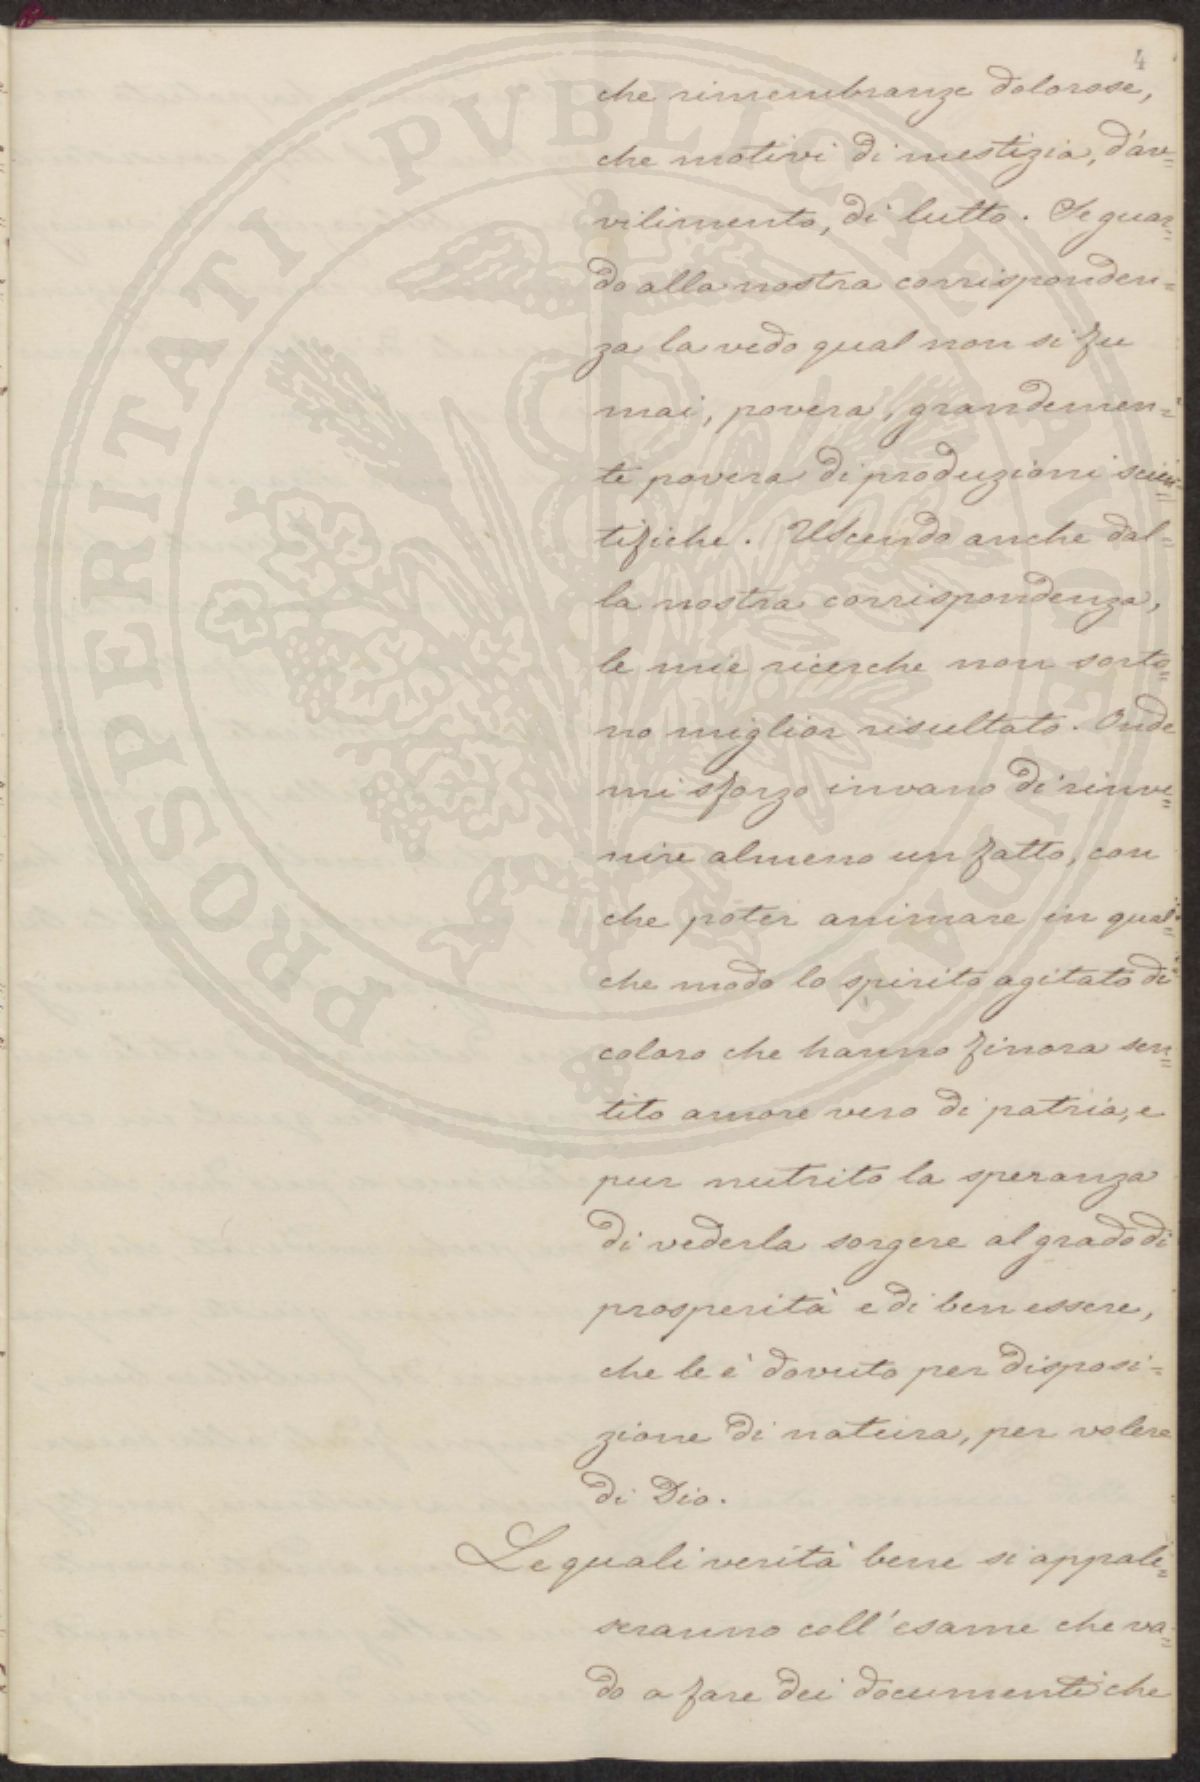 4
che rimembranze dolorose,
che motivi di mestizia, d'av=
vilimento, di lutto. Se guar=
do alla nostra corrisponden=
za la vedo qual non si fu
mai, povera, grandemen=
te povera di produzioni scien=
tifiche. Uscendo anche dal=
la nostra corrispondenza,
le mie ricerche non sorto=
no miglior risultato. Onde
mi sforzo invano di rinve=
nire almeno un fatto, con
che poter animare in qual=
che modo lo spirito agitato di
coloro che hanno finora sen=
tito amore vero di patria, e
pur nutrito la speranza
di vederla sorgere al grado di
prosperità e di ben essere,
che le è dovuto per disposi=
zione di natura, per volere
di Dio.
Le quali verità bene si appale=
seranno coll'esame che va=
do a fare dei documenti che
PROSPERITATI PVBLICAE AVGENDAE